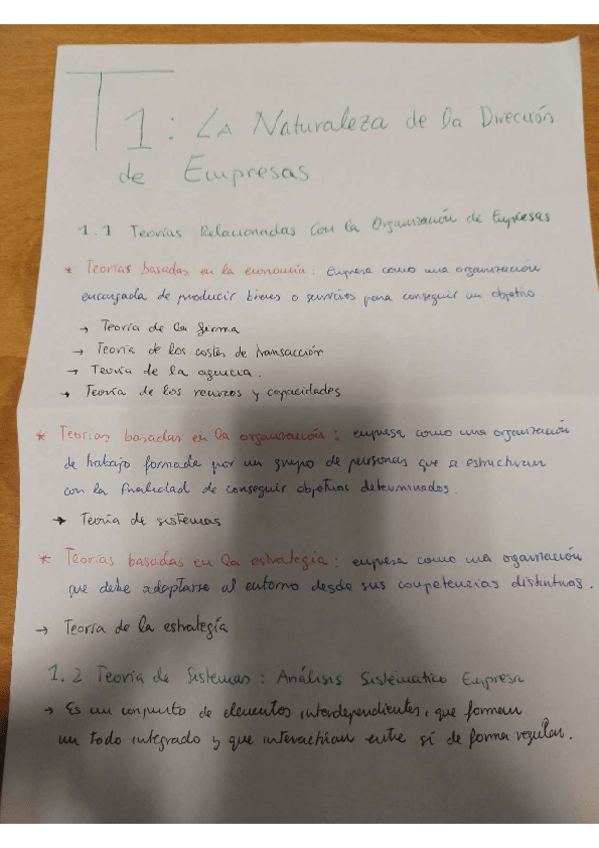 T1: La Naturaleza de la Dirección
de Empresas
1.1 Teorías Relacionadas con la Organización de Empresas
* Teorías basadas en la economía: Empresa como una organización
encargada de producir bienes o servicios para conseguir un objetivo.
→ Teoría de la firma
→ Teoría de los costes de transacción
→ Teoría de la agencia.
→ Teoría de los recursos y capacidades
* Teorías basadas en la organización: empresa como una organización
de trabajo formada por un grupo de personas que se estructuran
con la finalidad de conseguir objetivos determinados.
→ Teoría de sistemas
* Teorías basadas en la estrategia: empresa como una organización
que debe adaptarse al entorno desde sus competencias distintivas.
→ Teoría de la estrategia
1.2 Teoría de Sistemas: Análisis Sistemático Empresa
→ Es un conjunto de elementos interdependientes, que forman
un todo integrado y que interactúan entre sí de forma regular.